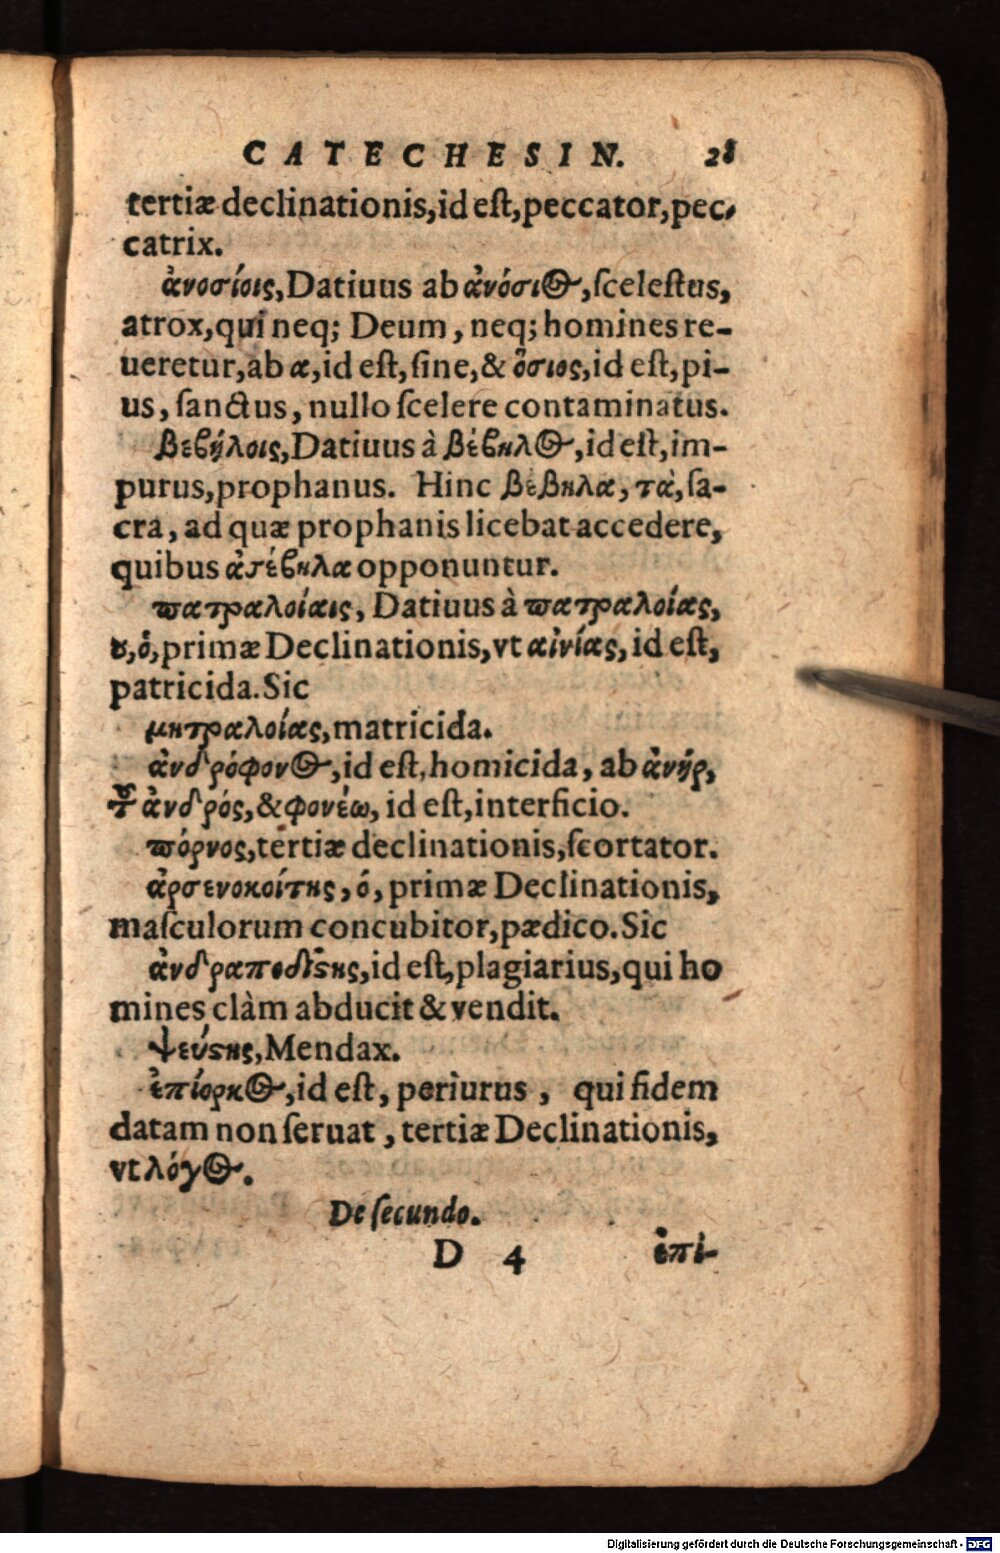 CATECHESIN. 28
tertiæ declinationis, id eſt, peccator, pec-
catrix.
ἀνοσίοις, Datiuus ab ἀνόσιος, ſceleſtus,
atrox, qui neq; Deum, neq; homines re-
ueretur, ab α, id eſt, ſine, & ὅσιος, id eſt, pi-
us, ſanctus, nullo ſcelere contaminatus.
βεβήλοις, Datiuus à βέβηλος, id eſt, im-
purus, prophanus. Hinc βέβηλα, τὰ, ſa-
cra, ad quæ prophanis licebat accedere,
quibus ἀϛέβηλα opponuntur.
πατραλοίαις, Datiuus à πατραλοίας,
ου, ὁ, primæ Declinationis, vt αἰνίας, id eſt,
patricida. Sic
μητραλοίας, matricida.
ἀνδρόφονος, id eſt, homicida, ab ἀνὴρ,
τοῦ ἀνδρός, & φονέω, id eſt, interficio.
πόρνος, tertiæ declinationis, ſcortator.
ἀρσενοκοίτης, ὁ, primæ Declinationis,
maſculorum concubitor, pædico. Sic
ἀνδραποδιϛης, id eſt, plagiarius, qui ho
mines clàm abducit & vendit.
ψεύϛης, Mendax.
ἐπίορκος, id eſt, periurus, qui fidem
datam non ſeruat, tertiæ Declinationis,
vt λόγος.
De ſecundo.
D 4 ἐπί-
Digitalisierung gefördert durch die Deutsche Forschungsgemeinschaft - DFG